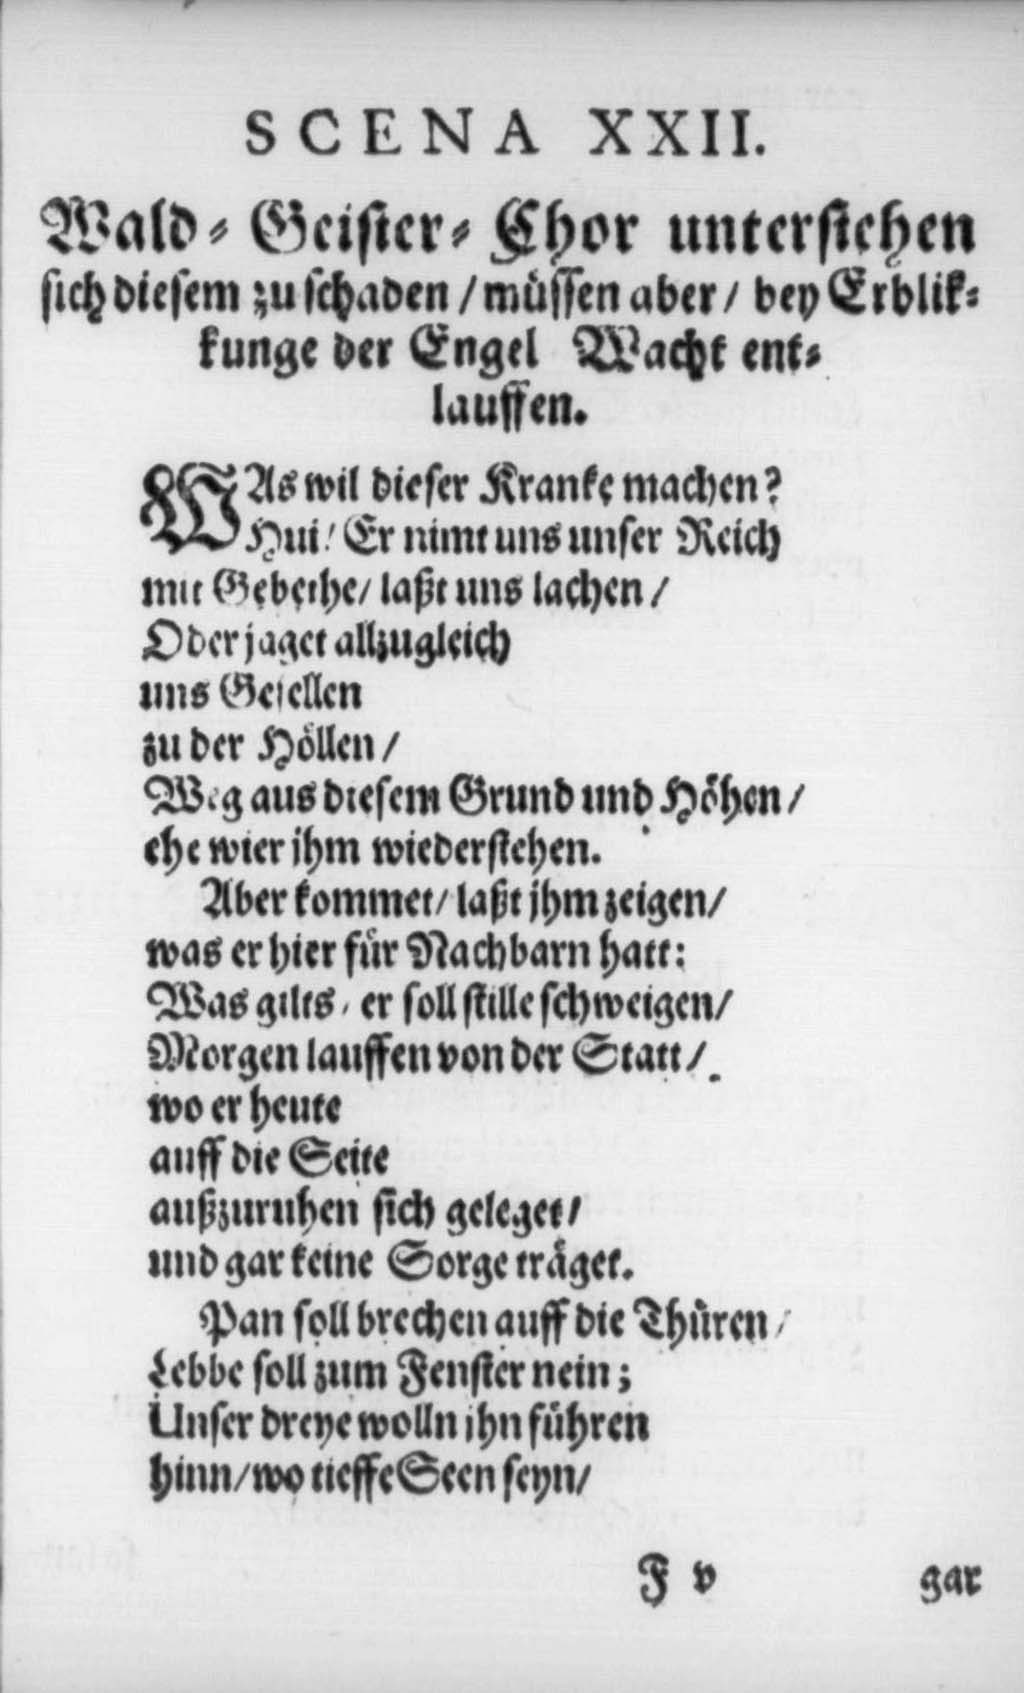 SCENA XXII.
Wald-Geister-Chor unterstehen
sich diesem zu schaden / müssen aber / bey Erblik-
kunge der Engel Wacht ent-
lauffen.
WAs wil dieser Kranke machen?
Hui! Er nimt uns unser Reich
mit Gebethe / laßt uns lachen /
Oder jaget allzugleich
uns Gesellen
zu der Höllen /
Weg aus diesem Grund und Höhen /
ehe wier ihm wiederstehen.
Aber kommet / laßt jhm zeigen /
was er hier für Nachbarn hatt:
Was gilts / er soll stille schweigen /
Morgen lauffen von der Statt /
wo er heute
auff die Seite
außzuruhen sich geleget /
und gar keine Sorge träget.
Pan soll brechen auff die Thüren /
Lebbe soll zum Fenster nein;
Unser dreye wolln ihn führen
hinn / wo tieffe Seen seyn /
F v gar